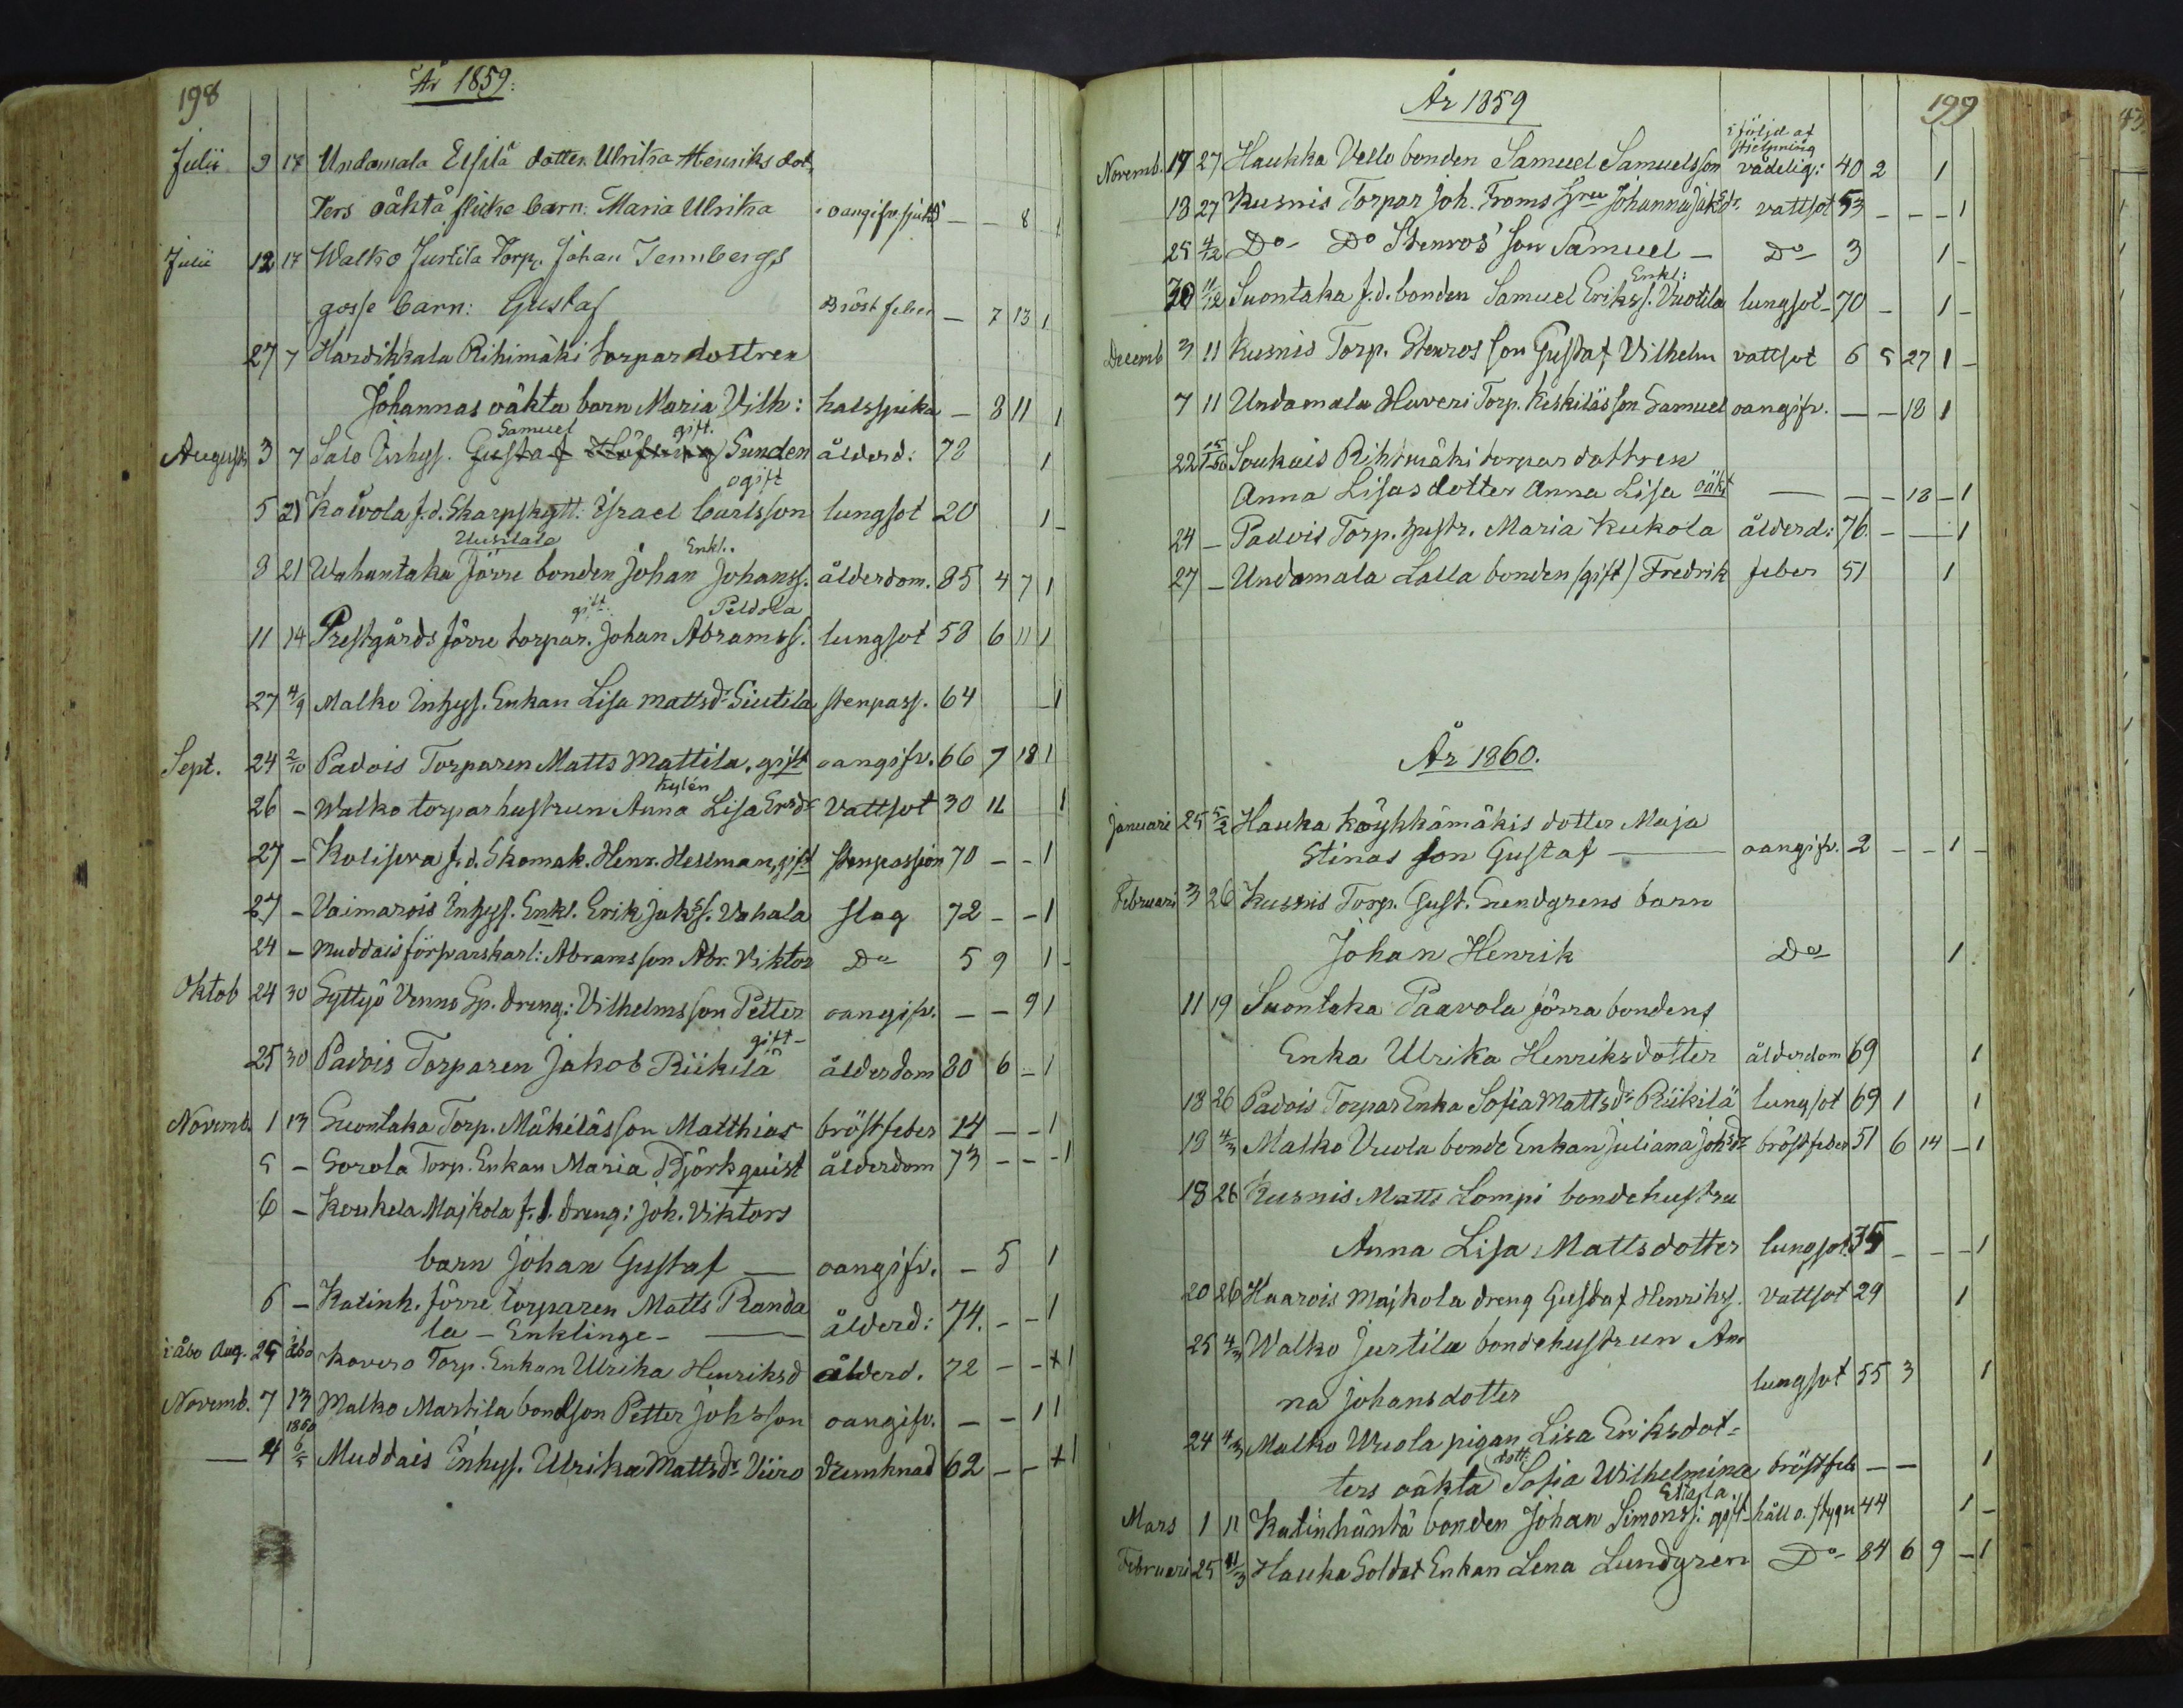 198
År 1859.
Julii 9 17 Undamala Eipilä dotter Ulrika Henriks dot
ters oäkta flicke barn: Maria Ulrika oangifv. sjukd. — — 8 1
Julii 12 17 Walko Jurtila Torp. Johan Tennbergs
gosse barn: Gustaf Bröstfeber — 7 13 1
27 7 Hardikkala Rihimäki torpar dottren
Johannas oäkta barn Maria Vilh: halssjuka — 8 11 1
Samuel gift.
August 3 7 Salo Inhys. Gustaf Sunden ålderd: 78 1
ogift
5 21 Kaivola f.d. Skarpskytt. Israel Carlsson lungsot 20 1 -
Uusitalo Enkl.
8 21 Wahantaka förre bonden Johan Johanss. ålderdom. 85 4 7 1
gift. Peldola
11 14 Prestgårds förre torpar. Johan Abramss. lungsot 58 6 11 1
27 4/9 Malko Inhys. Enkan Lisa Mattsdr Siutila stenpass. 64 - 1
Sept. 24 2/10 Padois Torparen Matts Mattila, gift oangifv. 66 7 18 1
Kylén
26 - Walko torpar hustrun Anna Lisa Ersdr Vattsot 30 11 1
27 - Kolisjeva f.d. Skomak. Henr. Hellman, gift stenpassion 70 - - 1
27 - Vaimarois Inhys. Enkl. Erik Jakss. Vahala slag 72 - - 1
24 - Muddais förparskarl: Abrams son Abr. Viktor Do 5 9 1 -
Oktob 24 30 Gyttyö Venno Sp. dreng: Vilhelms son Petter oangifv. - - 9 1
gift -
25 30 Padois Torparen Jakob Riikilä ålderdom 80 6 - 1
Novemb. 1 13 Suontaka Torp. Mäkiläs son Matthias bröstfeber 14 - - 1
5 - Sorola Torp. Enkan Maria Björkquist ålderdom 73 - - - 1
6 - Koukela Majkola f.d. dreng: Joh. Viktors
barn Johan Gustaf — oangifv. - 5 1
6 - Katinh. förre torparen Matts Randa
la - Enklinge - — ålderd: 74. - - 1
i åbo Aug. 25 Åbo Kovero Torp. Enkan Ulrika Henriksd ålderd. 72 - - + 1
Novemb. 7 13 Malko Martila bondson Petter Johsson oangifv. - - 1 1
1860
— 4 6/5 Muddais Inhys. Ulrika Mattsdr Viiro drunknad 62 - - + 1
199
År 1859
i följd af
stjelpning
Novemb. 17 27 Haukka Vello bonden Samuel Samuelsson vådelig: 40 2 1
18 27 Kusnis Torpar Joh. Froms Hru Johanna Jaksdr. vattsot 53 - - - 1
25 4/12 Do - Do Stenros' son Samuel - Do 3 1 -
Enkl:
30 11/12 Suontaka f.d. bonden Samuel Erikss. Vuotila lungsot - 70 - 1 -
Decemb 3 11 Kusnis Torp. Stenros son Gustaf Vilhelm vattsot 6 5 27 1 -
7 11 Undamala Huveri Torp. Keskiläs son Samuel oangifv. - - 18 1
22 15/1 60 Soukais Rihimäki torpar dottren
Anna Lisas dotter Anna Lisa oäkt — - - 18 - 1
24 - Padois Torp. hustr. Maria Kukola ålderd: 76. - - 1
27 - Undamala Lalla bonden (gift) Fredrik feber 51 1
År 1860.
Januari 25 5/2 Hauka Köykkämäkis dotter Maja
Stinas son Gustaf — oangifv. 2 - - 1 -
Februari 3 26 Kusnis Torp. Gust. Sundgrens barn
Johan Henrik Do 1
11 19 Suontaka Paavola förra bondens
Enka Ulrika Henriksdotter ålderdom 69 1
18 26 Padois Torpar Enka Sofia Mattsdr Riikilä lungsot 69 1 1
18 4/3 Malko Uuola bonde Enkan Juliana Johsdr bröstfeber 51 6 14 - 1
18 26 Kusnis Matts Lompi bonde hustru
Anna Lisa Mattsdotter lungsot 35 - - - 1
20 26 Haarois Majkola dreng Gustaf Henrikss. Vattsot 29 1
25 4/3 Walko Jurtila bondehustrun An
na Johansdotter lungsot 55 3 1
24 4/3 Malko Uuola pigan Lisa Eriksdot=
dott.
ters oäkta Sofia Wilhelmina bröstfeb - - 1
Mars 1 11 Katinhäntä bonden Johan Simonss: gift - håll o. styng 44 1 -
Februari 25 11/3 Hauka Soldat Enkan Lena Lundgren Do - 84 6 9 - 1